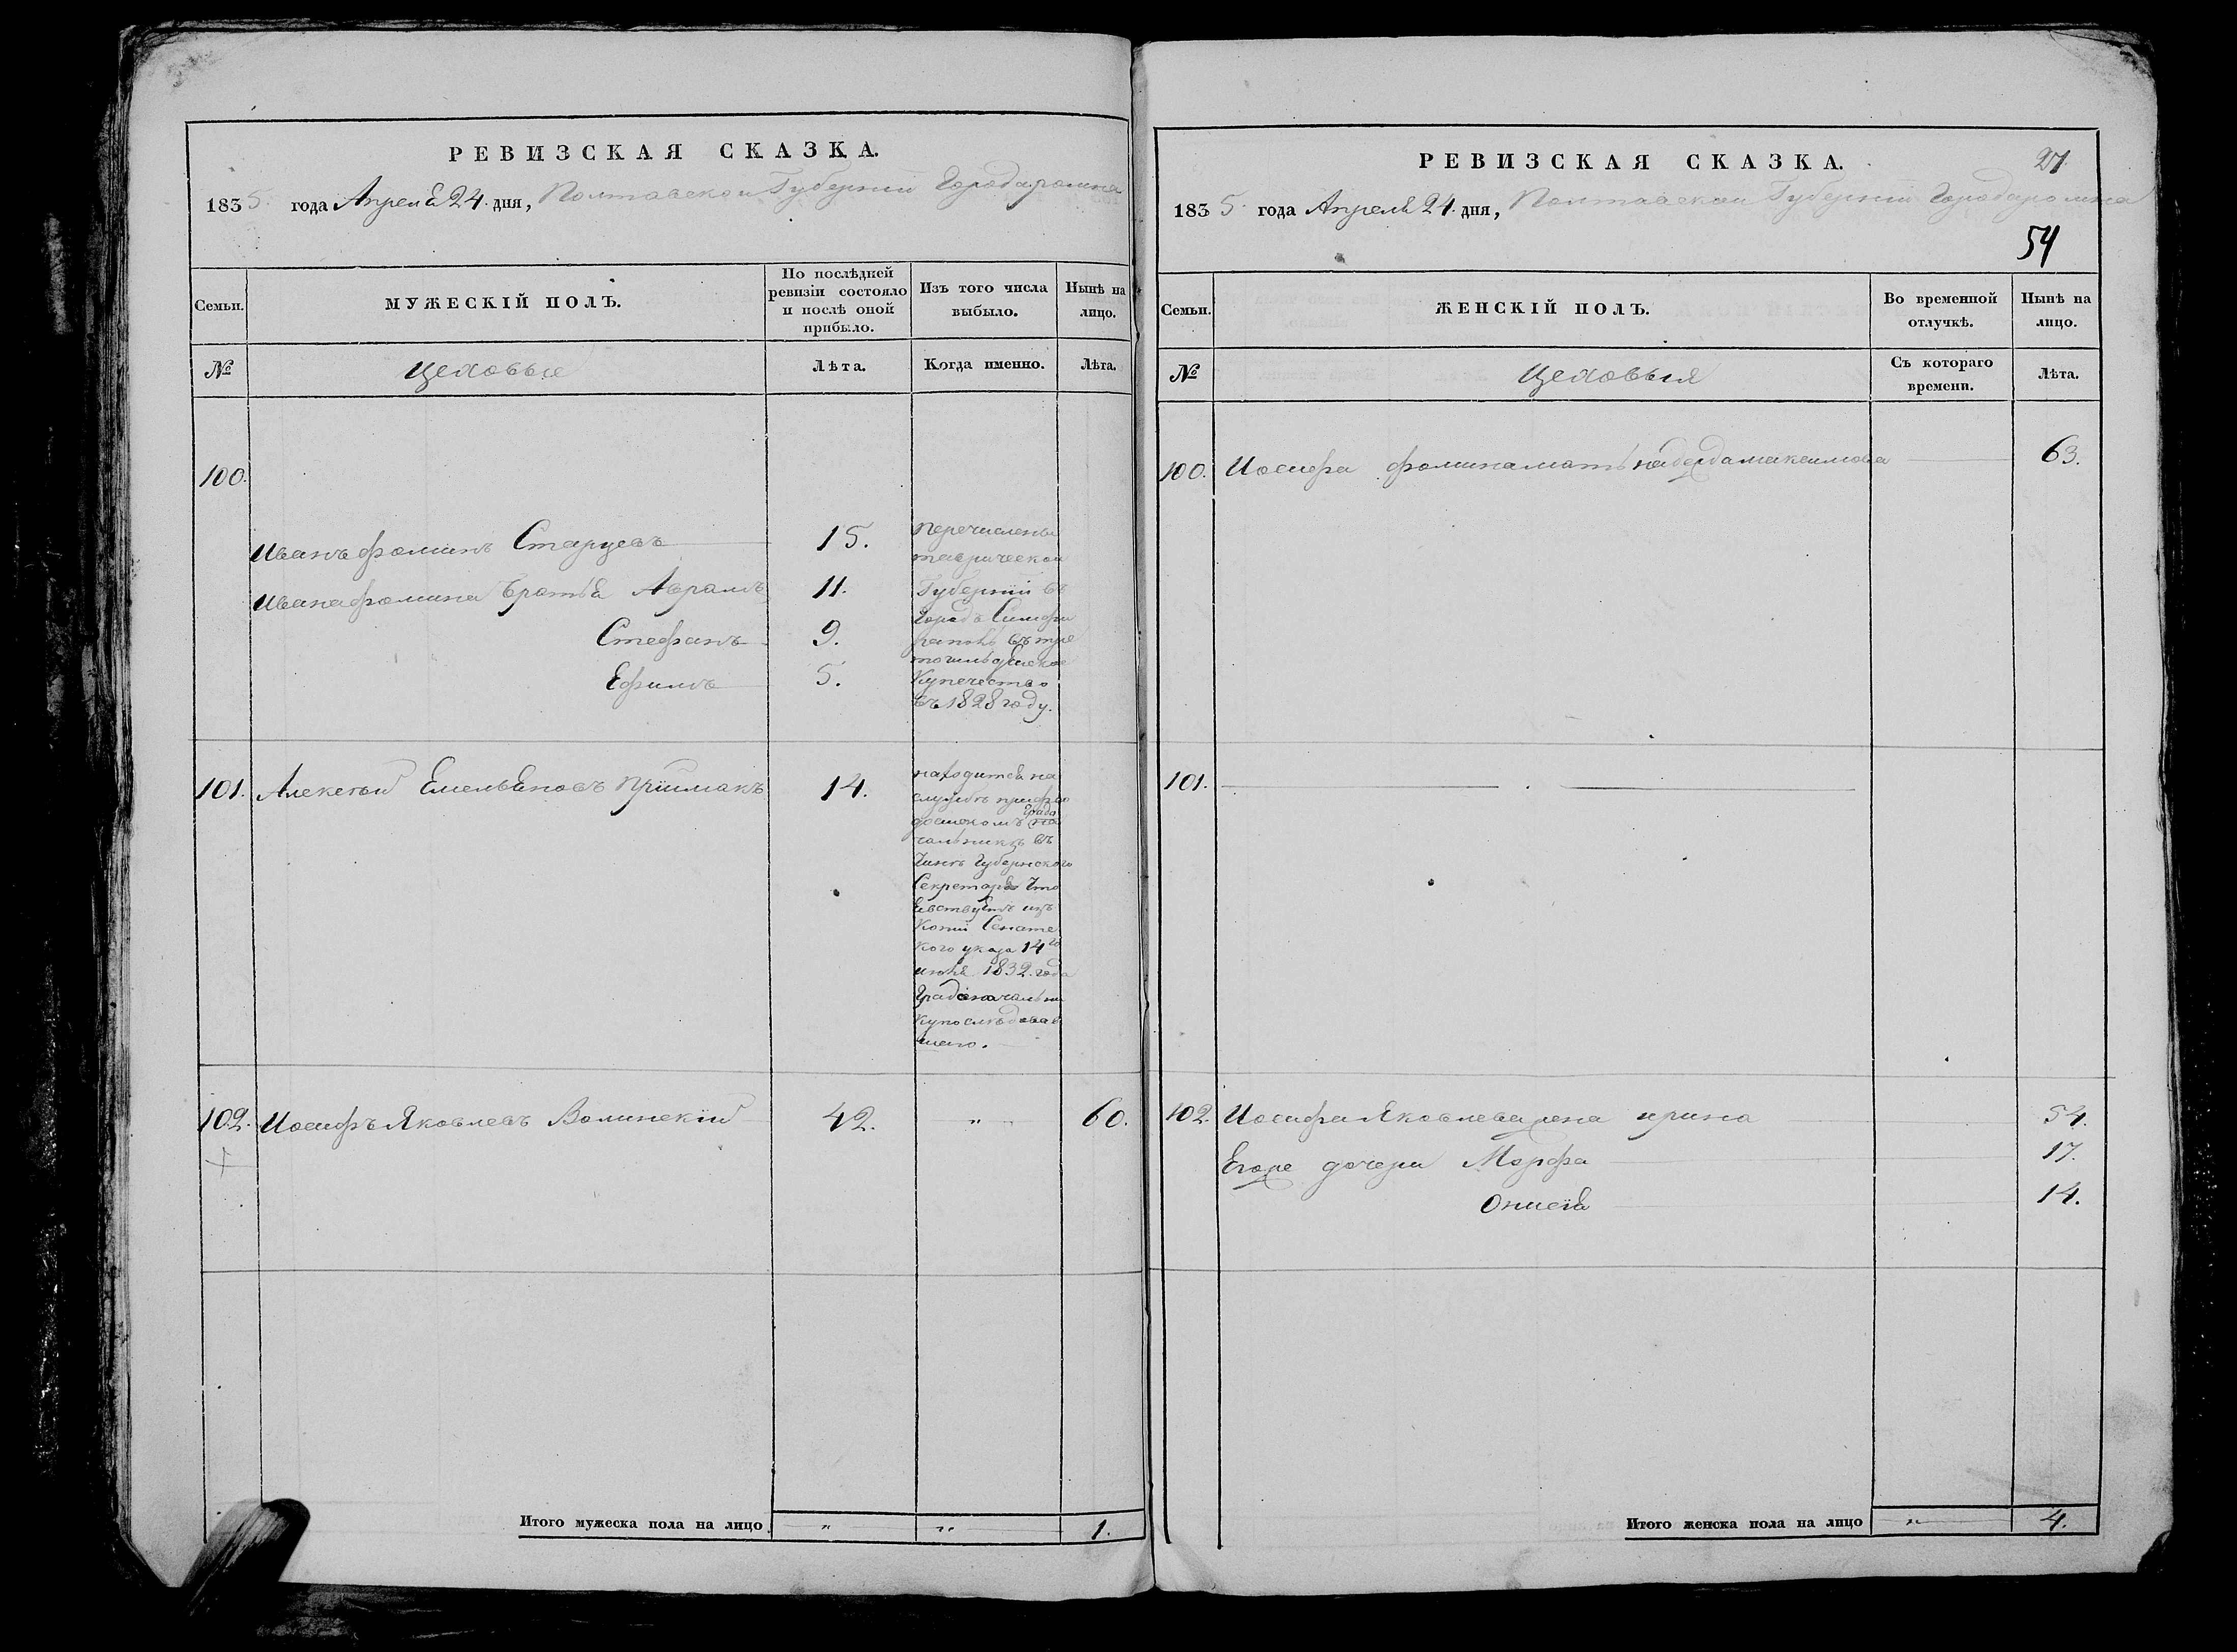 РЕВИЗСКАЯ СКАЗКА.
1835. года Апреля 24. дня, Полтавской Губернии Города ромна
Семьи.
МУЖЕСКІЙ ПОЛЪ.
По послѣдней ревизіи состояло и послѣ оной прибыло.
Изъ того числа выбыло.
Нынѣ на лицо.
№
Цеховые
Лѣта.
Когда именно.
Лѣта.
100.
Иванъ фоминъ Старцевъ 15.
Ивана фомина братья Аврамъ 11.
Стефанъ 9.
Ефимъ 5.
перечислены
таврической
Губерніи въ
Городъ Симфи
рапохъ въ тре
тогильдейское
Купечество
въ 1828 году.
101. Алексей Емельяновъ Пріймакъ 14.
находится на
службѣ при фео
досиском Града
чальникѣ въ
Чинѣ Губернского
Секретаря что
Копіи Сенатс
кого указа 14го
июня 1832. года
Градоначальни
ку последовав
шего.
102. Иосифъ Яковлевъ Волинскій 42. " 60.
Итого мужеска пола на лицо " " 1.
РЕВИЗСКАЯ СКАЗКА.
27
1835. года Апреля 24. дня, Полтавской Губерніи Города ромна
54
Семьи.
ЖЕНСКІЙ ПОЛЪ.
Во временной отлучкѣ.
Нынѣ на лицо.
№
Цеховыя
Съ котораго времени.
Лѣта.
100. Иосифа фомина мать максимова 63.
101.
102. Иосифа Яковлева жена ирина 54.
Егоже дочери Марфа 17.
Онисія 14.
Итого женска пола на лицо " 4.